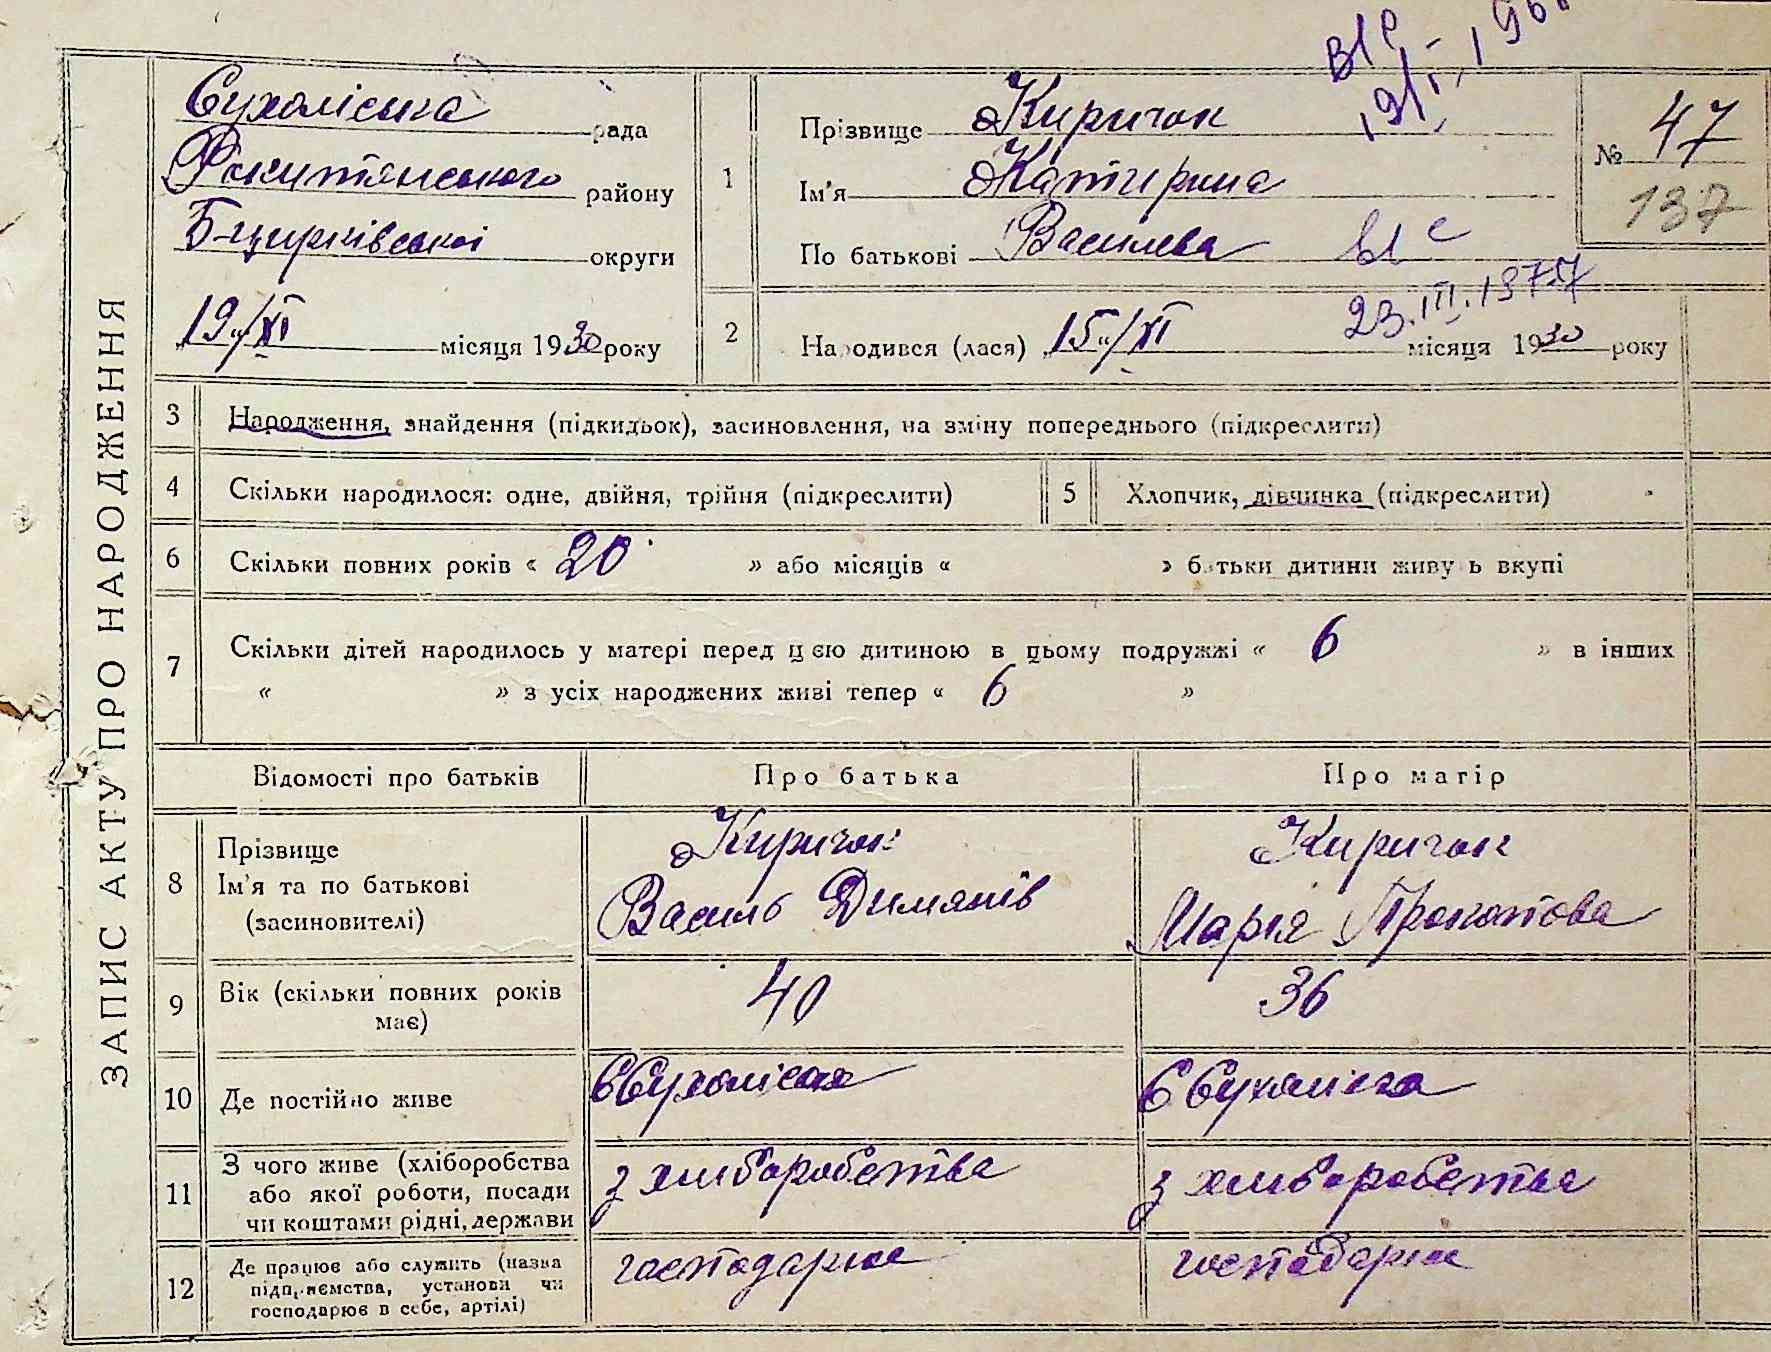 ЗАПИС АКТУ ПРО НАРОДЖЕННЯ
Сухоліська рада
Рокитянського району
Б-церківської округи
"19"/XI місяця 1930 року
1
Прізвище Киричок
Ім'я Катирина
По батькові Василева
ВІС
19/I
ВІС
23.III.1977
№ 47
137
2
Народився (лася) "15"/XI місяця 1930 року
3 Народження, знайдення (підкидьок), засиновлення, на зміну попереднього (підкреслити)
4 Скільки народилося: одне, двійня, трійня (підкреслити)
5 Хлопчик, дівчинка (підкреслити)
6 Скільки повних років « 20 » або місяців « » батьки дитини живуть вкупі
7 Скільки дітей народилось у матері перед цією дитиною в цьому подружжі « 6 » в інших
« » з усіх народжених живі тепер « 6 »
Відомості про батьків Про батька Про матір
8 Прізвище
Ім'я та по батькові
(засиновителі)
Киричок
Василь Димянів
Киричок
Марія Прокопова
9 Вік (скільки повних років
має)
40
36
10 Де постійно живе
с Сухоліся
с Сухоліса
11 З чого живе (хліборобства
або якої роботи, посади
чи коштами рідні, держави
з хліборобства
з хліборобства
12 Де працює або служить (назва
підприємства, установи чи
господарює в себе, артілі)
господарює
господарює